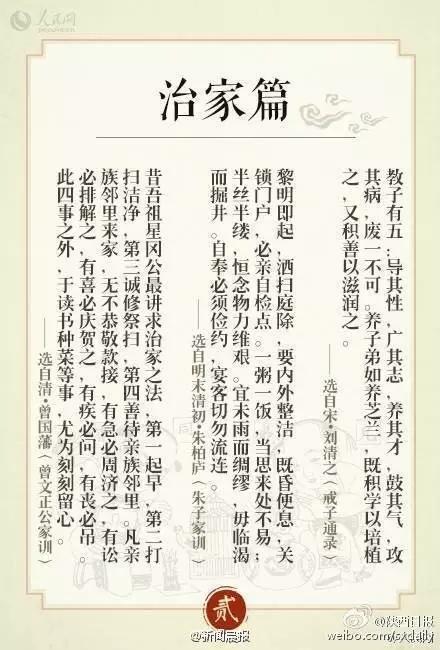 人民网
治家篇
教子有五：导其性，广其志，养其才，鼓其气，攻
其病，废一不可。养子弟如养芝兰，既积学以培植
之，又积善以滋润之。
——选自宋·刘清之（戒子通录）
黎明即起，洒扫庭除，要内外整洁，既昏便息，关
锁门户，必亲自检点。一粥一饭，当思来处不易；
半丝半缕，恒念物力维艰。宜未雨而绸缪，毋临渴
而掘井。自奉必须俭约，宴客切勿流连。
——选自明末清初·朱柏庐（朱子家训）
昔吾祖星冈公最讲求治家之法，第一起早，第二打
扫洁净，第三诚修祭扫，第四善待亲族邻里。凡亲
族邻里来家，无不恭敬款接，有急必周济之，有讼
必排解之，有喜必庆贺之，有疾必问，有丧必吊。
此四事之外，于读书种菜等事，尤为刻刻留心。
——选自清·曾国藩（曾文正公家训）
贰
@新闻晨报
@陕西日报
weibo.com/sxdaily